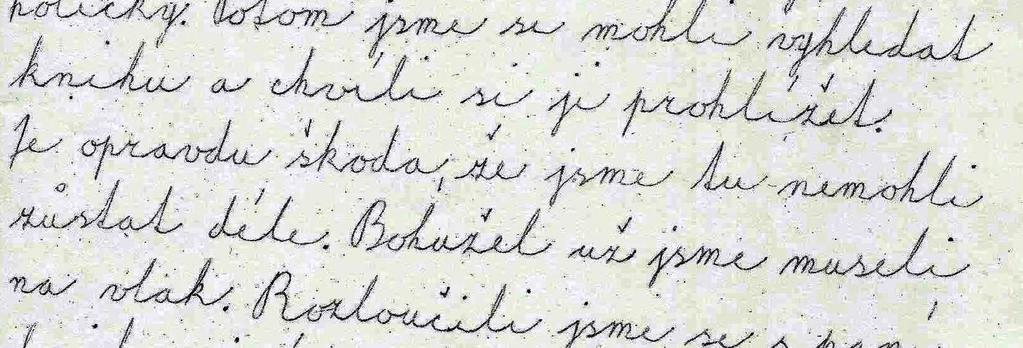 poličky. Potom jsme si mohli vyhledat
knihu a chvíli si ji prohlížet.
Je opravdu škoda, že jsme tu nemohli
zůstat déle. Bohužel už jsme museli
na vlak. Rozloučili jsme se s